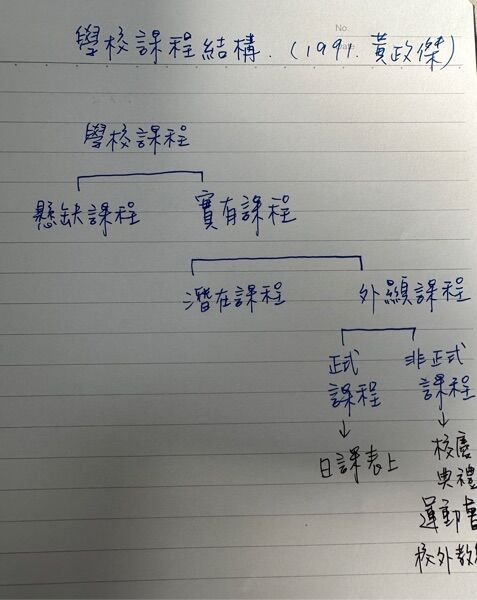 No.
學校課程結構. (1991. 黃政傑)
學校課程
懸缺課程 實有課程
潛在課程 外顯課程
正式 非正式
課程 課程
↓ ↓
日課表上 校慶
典禮
運動會
校外教